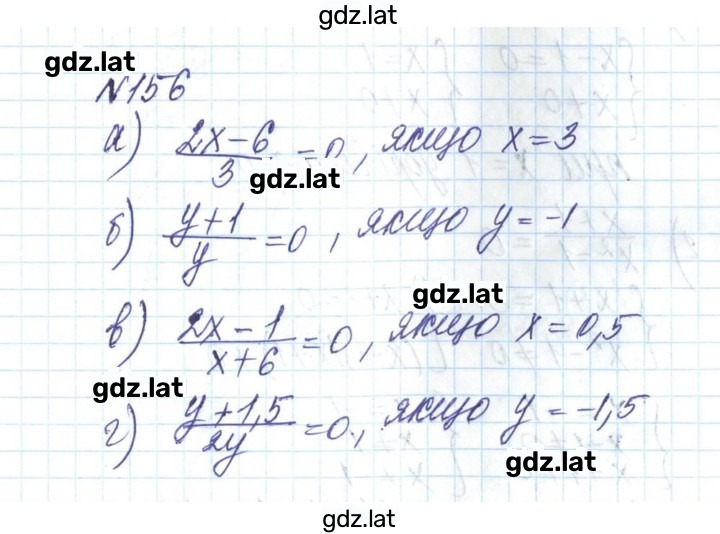 gdz.lat
gdz.lat
№156
а) (2x-6)/3 = 0, якщо x = 3
gdz.lat
б) (y+1)/y = 0, якщо y = -1
gdz.lat
в) (2x-1)/(x+6) = 0, якщо x = 0,5
gdz.lat
г) (y+1,5)/2y = 0, якщо y = -1,5
gdz.lat
gdz.lat